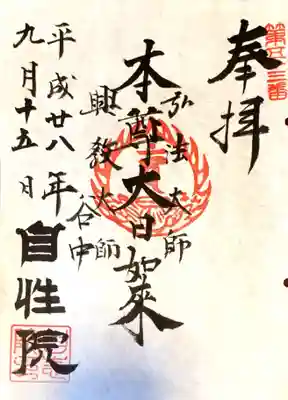 奉拝
第五十三番
弘法大師
本尊大日如来
興教大師
谷中
平成廿八年
九月十五日
自性院